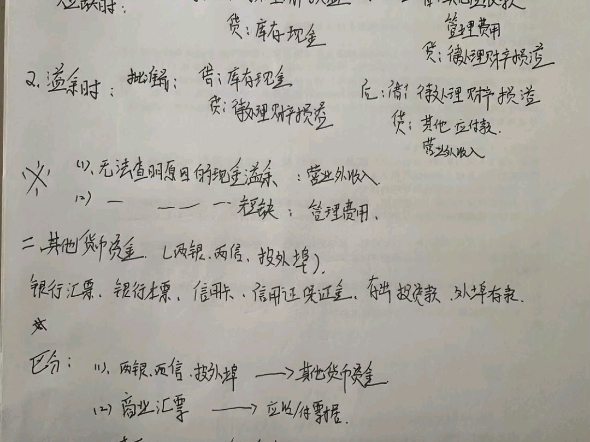 短缺时:
贷:库存现金
管理费用
贷:待处理财产损溢
2.溢余时: 批准前: 借:库存现金 后:借:待处理财产损溢
贷:待处理财产损溢 贷:其他应付款.
营业外收入
※ (1).无法查明原因的现金溢余:营业外收入.
(2) 一 一一 一短缺:管理费用.
二、其他货币资金.(两银、两信、投外埠).
银行汇票、银行本票、信用卡、信用证保证金、存出投资款、外埠存款.
区分: (1).两银、两信、投外埠 → 其他货币资金
(2) 商业汇票 → 应收/付票据.